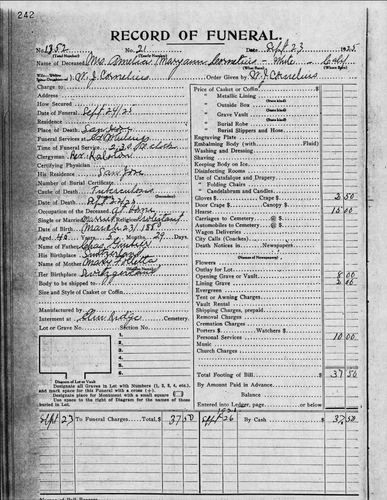 242
RECORD OF FUNERAL.
No. 1352 No. 21 Date Sept 23 1925
(Total Number) (Yearly Number)
Name of Deceased Mrs. Amelia Maryann Cornelius - White - Calif
W. J. Cornelius Order Given by W. J. Cornelius
Charge to
Address
How Secured
Date of Funeral Sept 24/21
Residence
Place of Death San Jose
Funeral Services at
Time of Funeral Service 2:30 O'clock
Clergyman Rev. Ralston
Certifying Physician
His Residence San Jose
Number of Burial Certificate
Cause of Death Tuberculosis
Date of Death Sept 22/21
Occupation of the Deceased At Home
Single or Married Married Religion Protestant
Date of Birth March 23/188
Aged 40 Years 5 Months 29 Days
Name of Father
His Birthplace Switzerland
Name of Mother Mary
Her Birthplace Switzerland
Body to be shipped to
Size and Style of Casket or Coffin
Manufactured by
Interment at Cemetery.
Lot or Grave No. Section No.
1
2
3
4
5
6
Diagram of Lot or Vault
Designate all Graves in Lot with Numbers (1, 2, 3, 4, etc.),
and mark space for this Funeral with a cross (+).
Designate place for Monument with a small square
Use space to the right of Diagram for the names of those
buried in Lot.
Price of Casket or Coffin $
" Metallic Lining
" Outside Box
" Grave Vault
" Burial Robe
" Burial Slippers and Hose
Engraving Plate
Embalming Body (with Fluid)
Washing and Dressing
Shaving
Keeping Body on Ice
Disinfecting Rooms
Use of Catafalque and Drapery
" Folding Chairs
" Candelabrum and Candles
Gloves $ 2 50
Door Crape $ Canopy $
Hearse 15 00
Carriages to Cemetery @ $
Automobiles to Cemetery @ $
Wagon Deliveries
City Calls (Coaches)
Death Notices in Newspapers
Flowers
Outlay for Lot
Opening Grave or Vault 8 00
Lining Grave 2 00
Evergreen
Tent or Awning Charges
Vault Rental
Shipping Charges, prepaid
Removal Charges
Cremation Charges
Porters $ Watchers $
Personal Services 10 00
Music
Church Charges
Total Footing of Bill $ 37 50
By Amount Paid in Advance
Balance
Entered into Ledger, page or below.
Sept 23 To Funeral Charges, Total, $ 37 50 Sept 26 By Cash 37 50